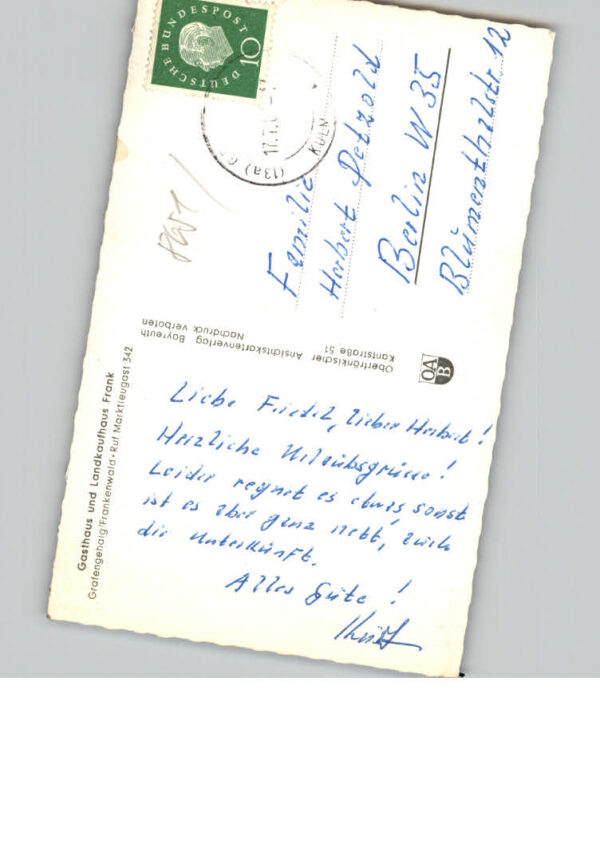 DEUTSCHE BUNDESPOST
10
(13a)
17.7.
KULM
Familie
Herbert Petzold
Berlin W 35
Blumenthalstr 12
Oberfränkischer Ansichtskartenverlag Bayreuth
Kantstraße 51
Nachdruck verboten
OA
B
Gasthaus und Landkaufhaus Frank
Grafengehaig/Frankenwald · Ruf Marktleugast 342
Liebe Friedel, lieber Herbert!
Herzliche Urlaubsgrüsse!
Leider regnet es etwas, sonst
ist es aber ganz nett, auch
die Unterkunft.
Alles Gute!